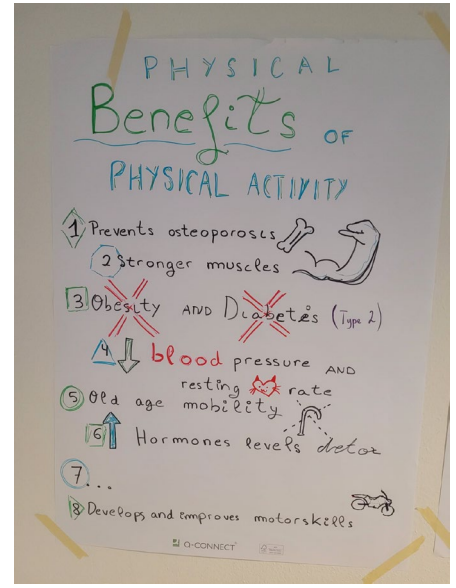 PHYSICAL
Benefits OF
PHYSICAL ACTIVITY
1 Prevents osteoporosis
2 Stronger muscles
3 Obesity AND Diabetes (Type 2)
4 blood pressure AND
resting rate
5 Old age mobility
6 Hormones levels detox
7...
8 Develops and improves motorskills
Q-CONNECT